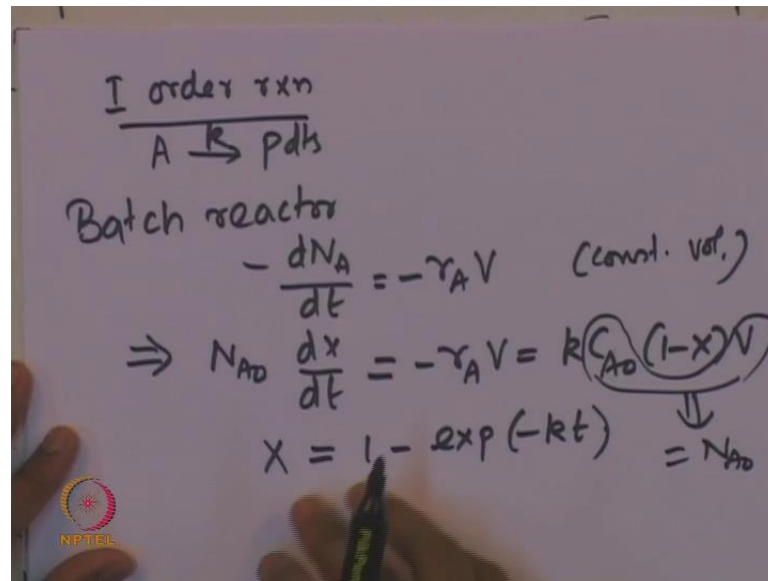 I order rxn
A k→ pdts
Batch reactor
- dN_A/dt = -r_A V (const. vol.)
⇒ N_A0 dx/dt = -r_A V = k C_A0 (1-x) V
⇓
x = 1 - exp(-kt) = N_A0
NPTEL